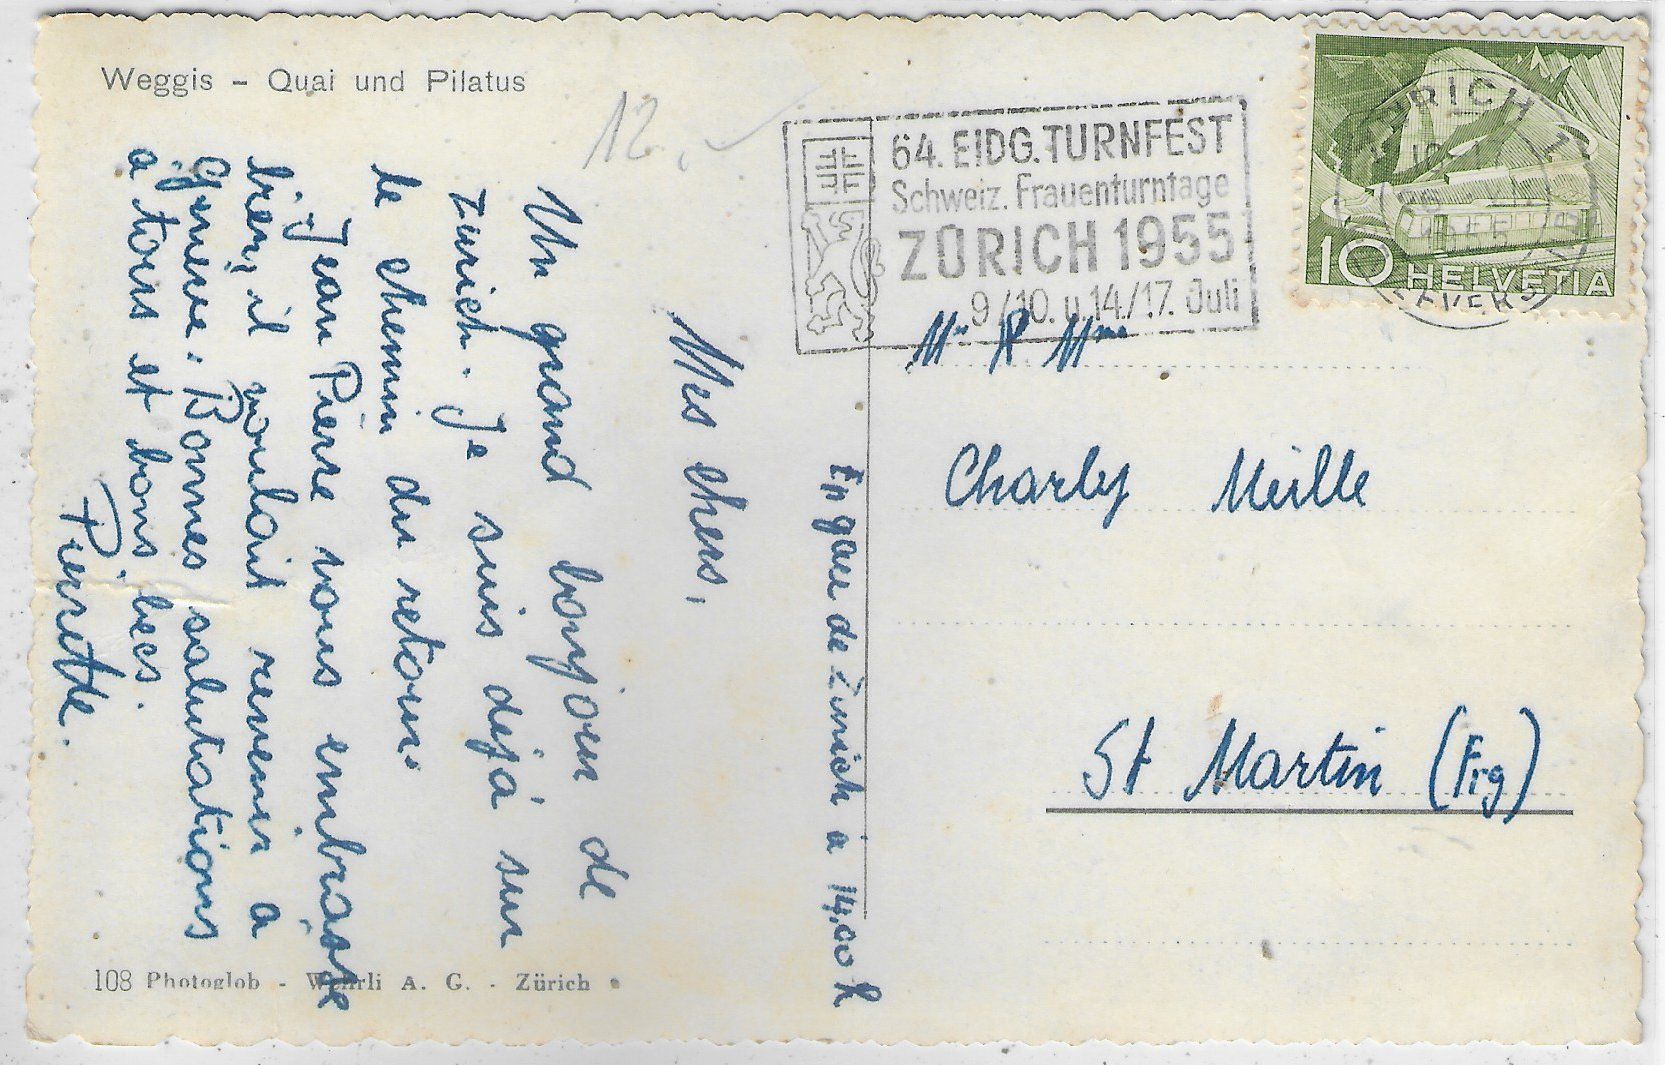 Weggis - Quai und Pilatus
12.-
64. EIDG. TURNFEST
Schweiz. Frauenturntage
ZÜRICH 1955
9./10. u. 14./17. Juli
ZÜRICH
10 HELVETIA
En gare de Zurich à 14.00 h
Mes chers,
Un grand bonjour de
Zurich. Je suis déjà sur
le chemin du retour.
Jean Pierre vous embrasse
bien, il voulait revenir à
Genève. Bonnes salutations
a tous et bons becs.
Pierrette.
Mr & Mme
Charly Meille
St Martin (Frg)
108 Photoglob - Wehrli A. G. - Zürich